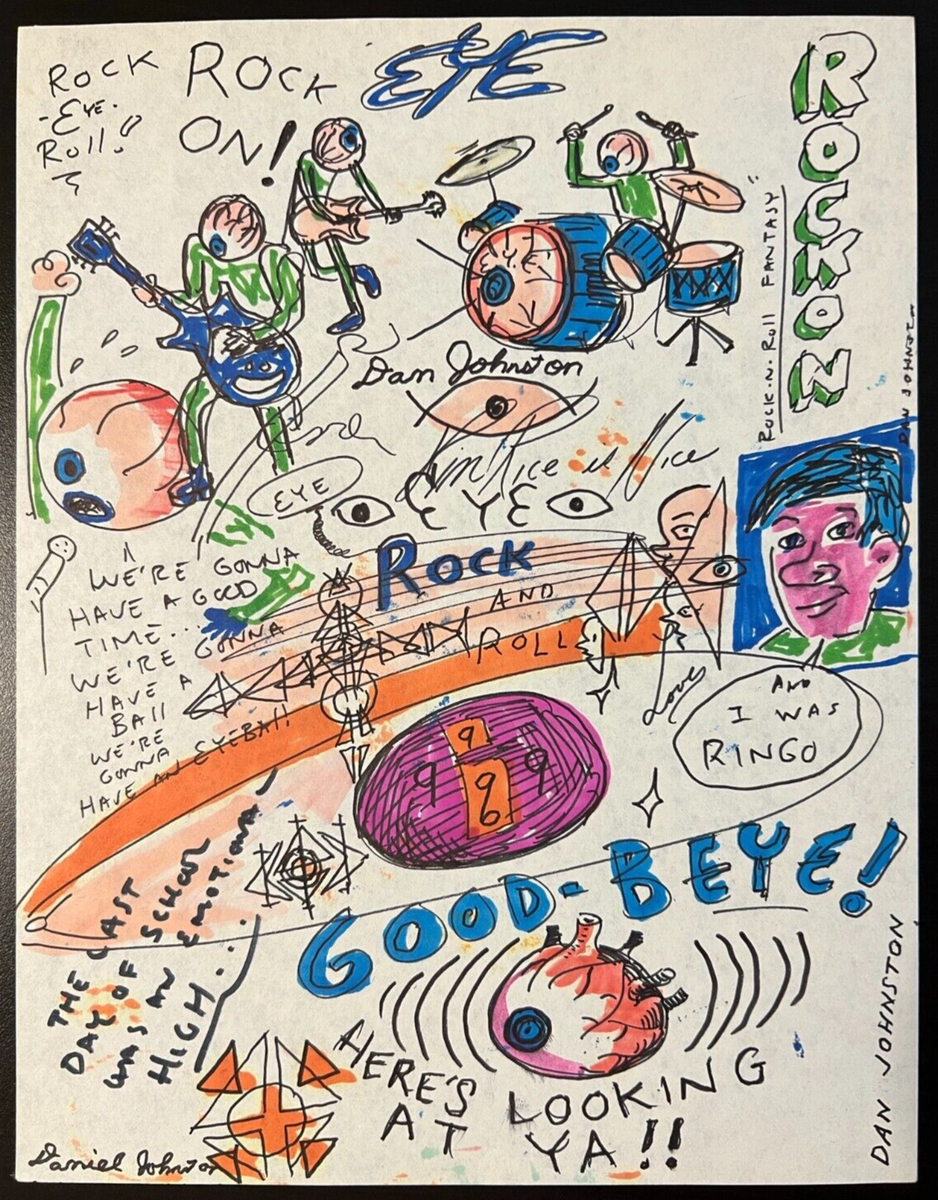 ROCK
-EYE-
ROLL!
ROCK
ON!
EYE
ROCK ON
ROCK-N-ROLL FANTASY"
Dan Johnston
DAN JOHNSTON
EYE
EYE
WE'RE GONNA
HAVE A GOOD
TIME...
WE'RE GONNA
HAVE A
BALL
WE'RE
GONNA
HAVE AN EYEBALL
ROCK
AND
ROLL
Love
AND
I WAS
RINGO
9
9 9 9
6
GOOD-BEYE!
THE LAST
DAY OF SCHOOL
WAS AN EMOTIONAL
HIGH...
HERE'S LOOKING
AT YA!!
Daniel Johnston
DAN JOHNSTON